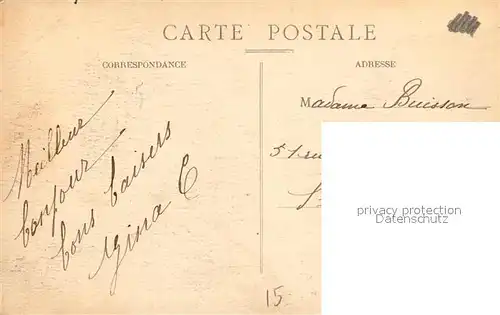 CARTE POSTALE
CORRESPONDANCE
ADRESSE
Meilleur
bonjour
bons baisers
Gina C
Madame Buisson
51 rue
15
privacy protection
Datenschutz